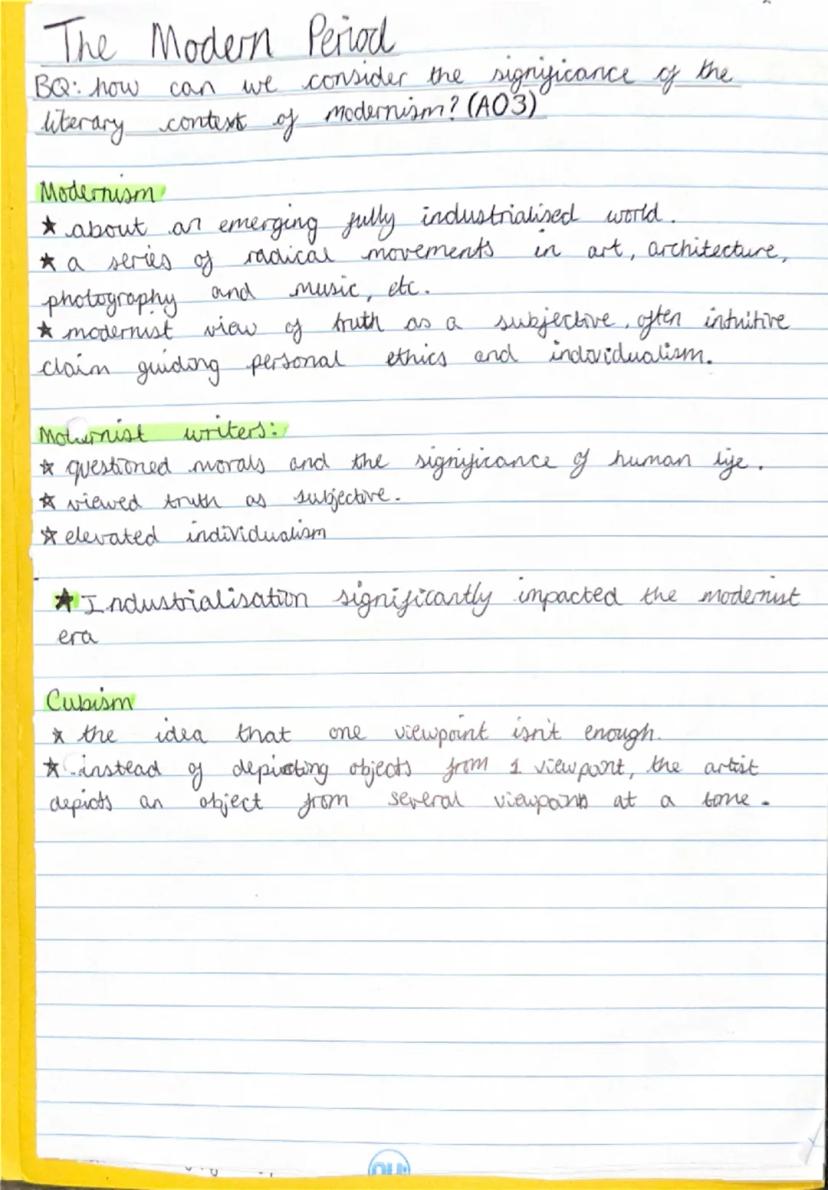 The Modern Period
BQ: how can we consider the significance of the
literary context of modernism? (AO3)
Modernism
★ about an emerging fully industrialised world.
★ a series of radical movements in art, architecture,
photography and music, etc.
★ modernist view of truth as a subjective, often intuitive
claim guiding personal ethics and individualism.
Modernist writers:
★ questioned morals and the significance of human life.
★ viewed truth as subjective.
★ elevated individualism
★ Industrialisation significantly impacted the modernist
era
Cubism
★ the idea that one viewpoint isn't enough.
★ instead of depicting objects from 1 viewpoint, the artist
depicts an object from several viewpoints at a tome.